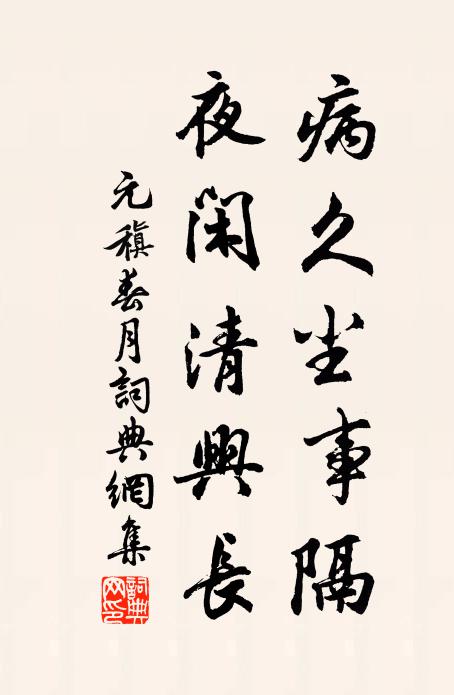 病久尘事隔
夜闲清興長
元稹春月詞典網集
詞典網印